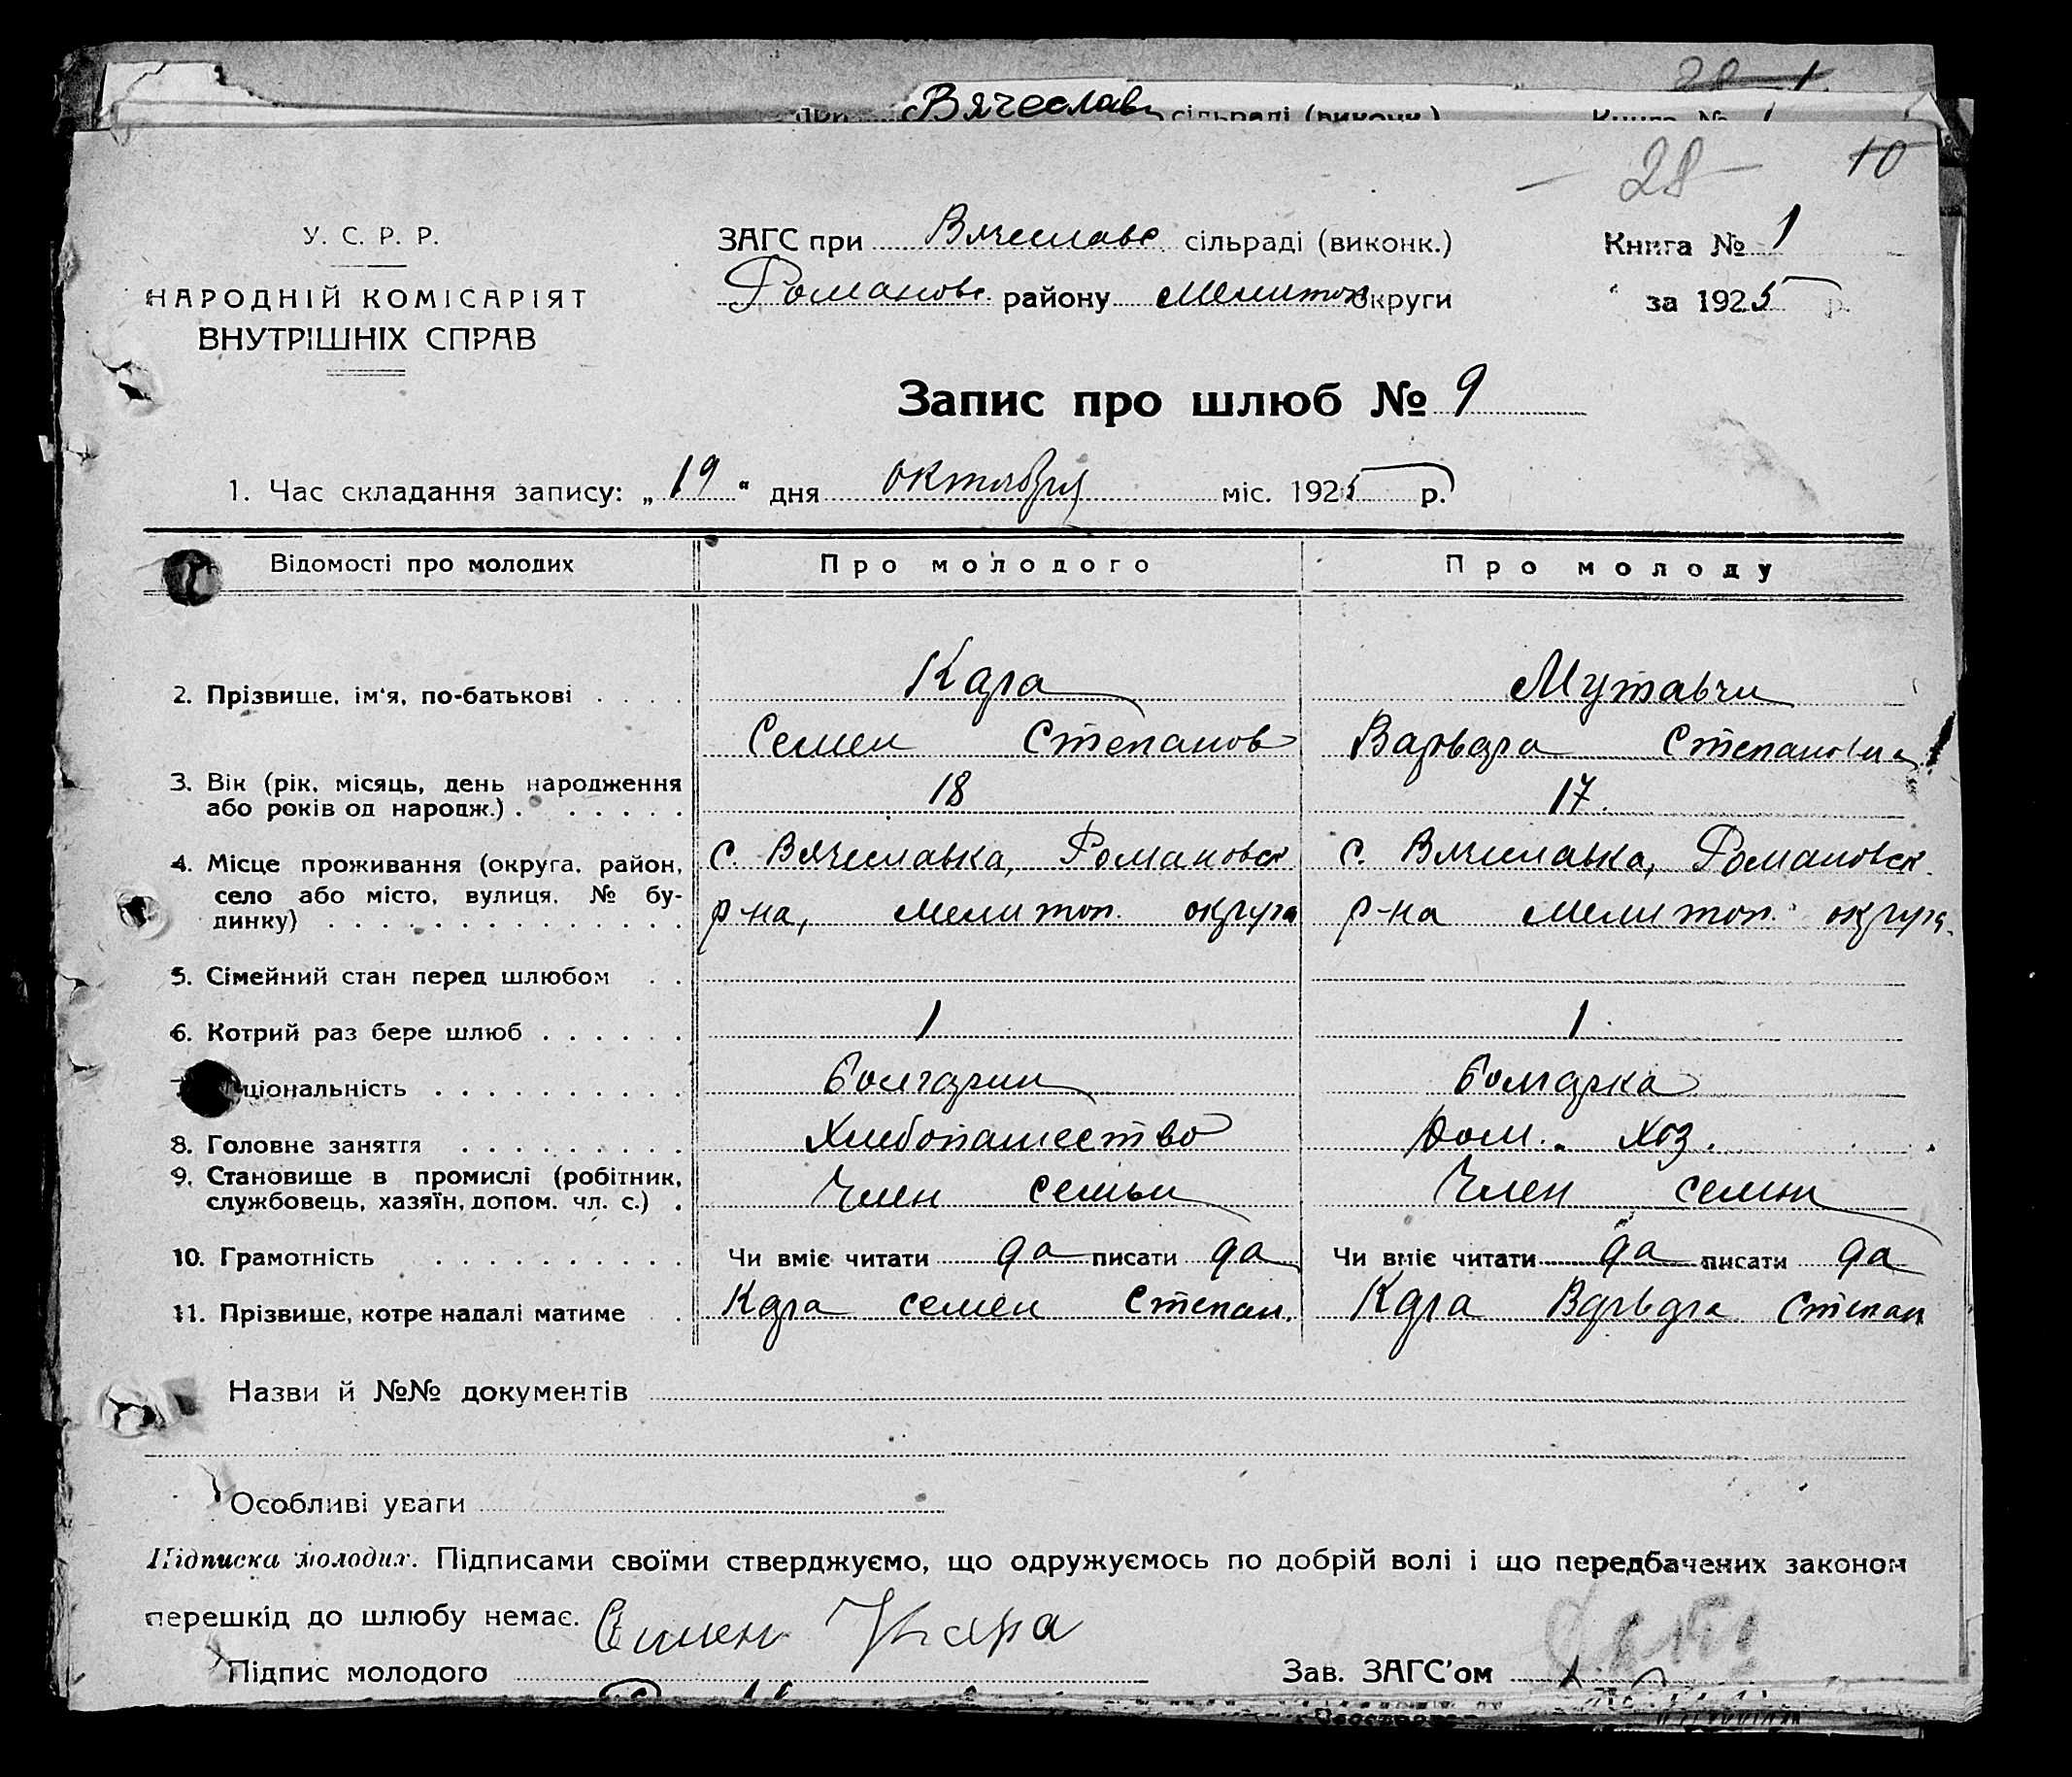 Вячеславк сільраді (виконк.) Книга № 1
28 10
У. С. Р. Р.
НАРОДНІЙ КОМІСАРІЯТ
ВНУТРІШНІХ СПРАВ
ЗАГС при Вячеславс сільраді (виконк.) Книга № 1
Романовс. району Мелитоп округи за 1925 р.
Запис про шлюб № 9
1. Час складання запису: „19“ дня октября міс. 1925 р.
Відомості про молодих Про молодого Про молоду
2. Прізвище, ім'я, по-батькові Кара Мутавчи
Семен Степанов Варвара Степановна
3. Вік (рік, місяць, день народження
або років од народж.) 18 17.
4. Місце проживання (округа, район, с. Вячеславка, Романовск с. Вячеславка, Романовск.
село або місто, вулиця, № бу-
динку) р-на, Мелитоп. округа р-на Мелитоп. округа.
5. Сімейний стан перед шлюбом
6. Котрий раз бере шлюб 1 1.
ціональність болгарин болгарка
8. Головне заняття Хлебопашество Дом. Хоз.
9. Становище в промислі (робітник,
службовець, хазяїн, допом. чл. с.) Член семьи Член семьи
10. Грамотність Чи вміє читати да писати да Чи вміє читати да писати да
11. Прізвище, котре надалі матиме Кара Семен Степан. Кара Варвара Степан
Назви й №№ документів
Особливі уваги
Підписка молодих. Підписами своїми стверджуємо, що одружуємось по добрій волі і що передбачених законом
перешкід до шлюбу немає. Семен Кара
Підпис молодого Зав. ЗАГС'ом